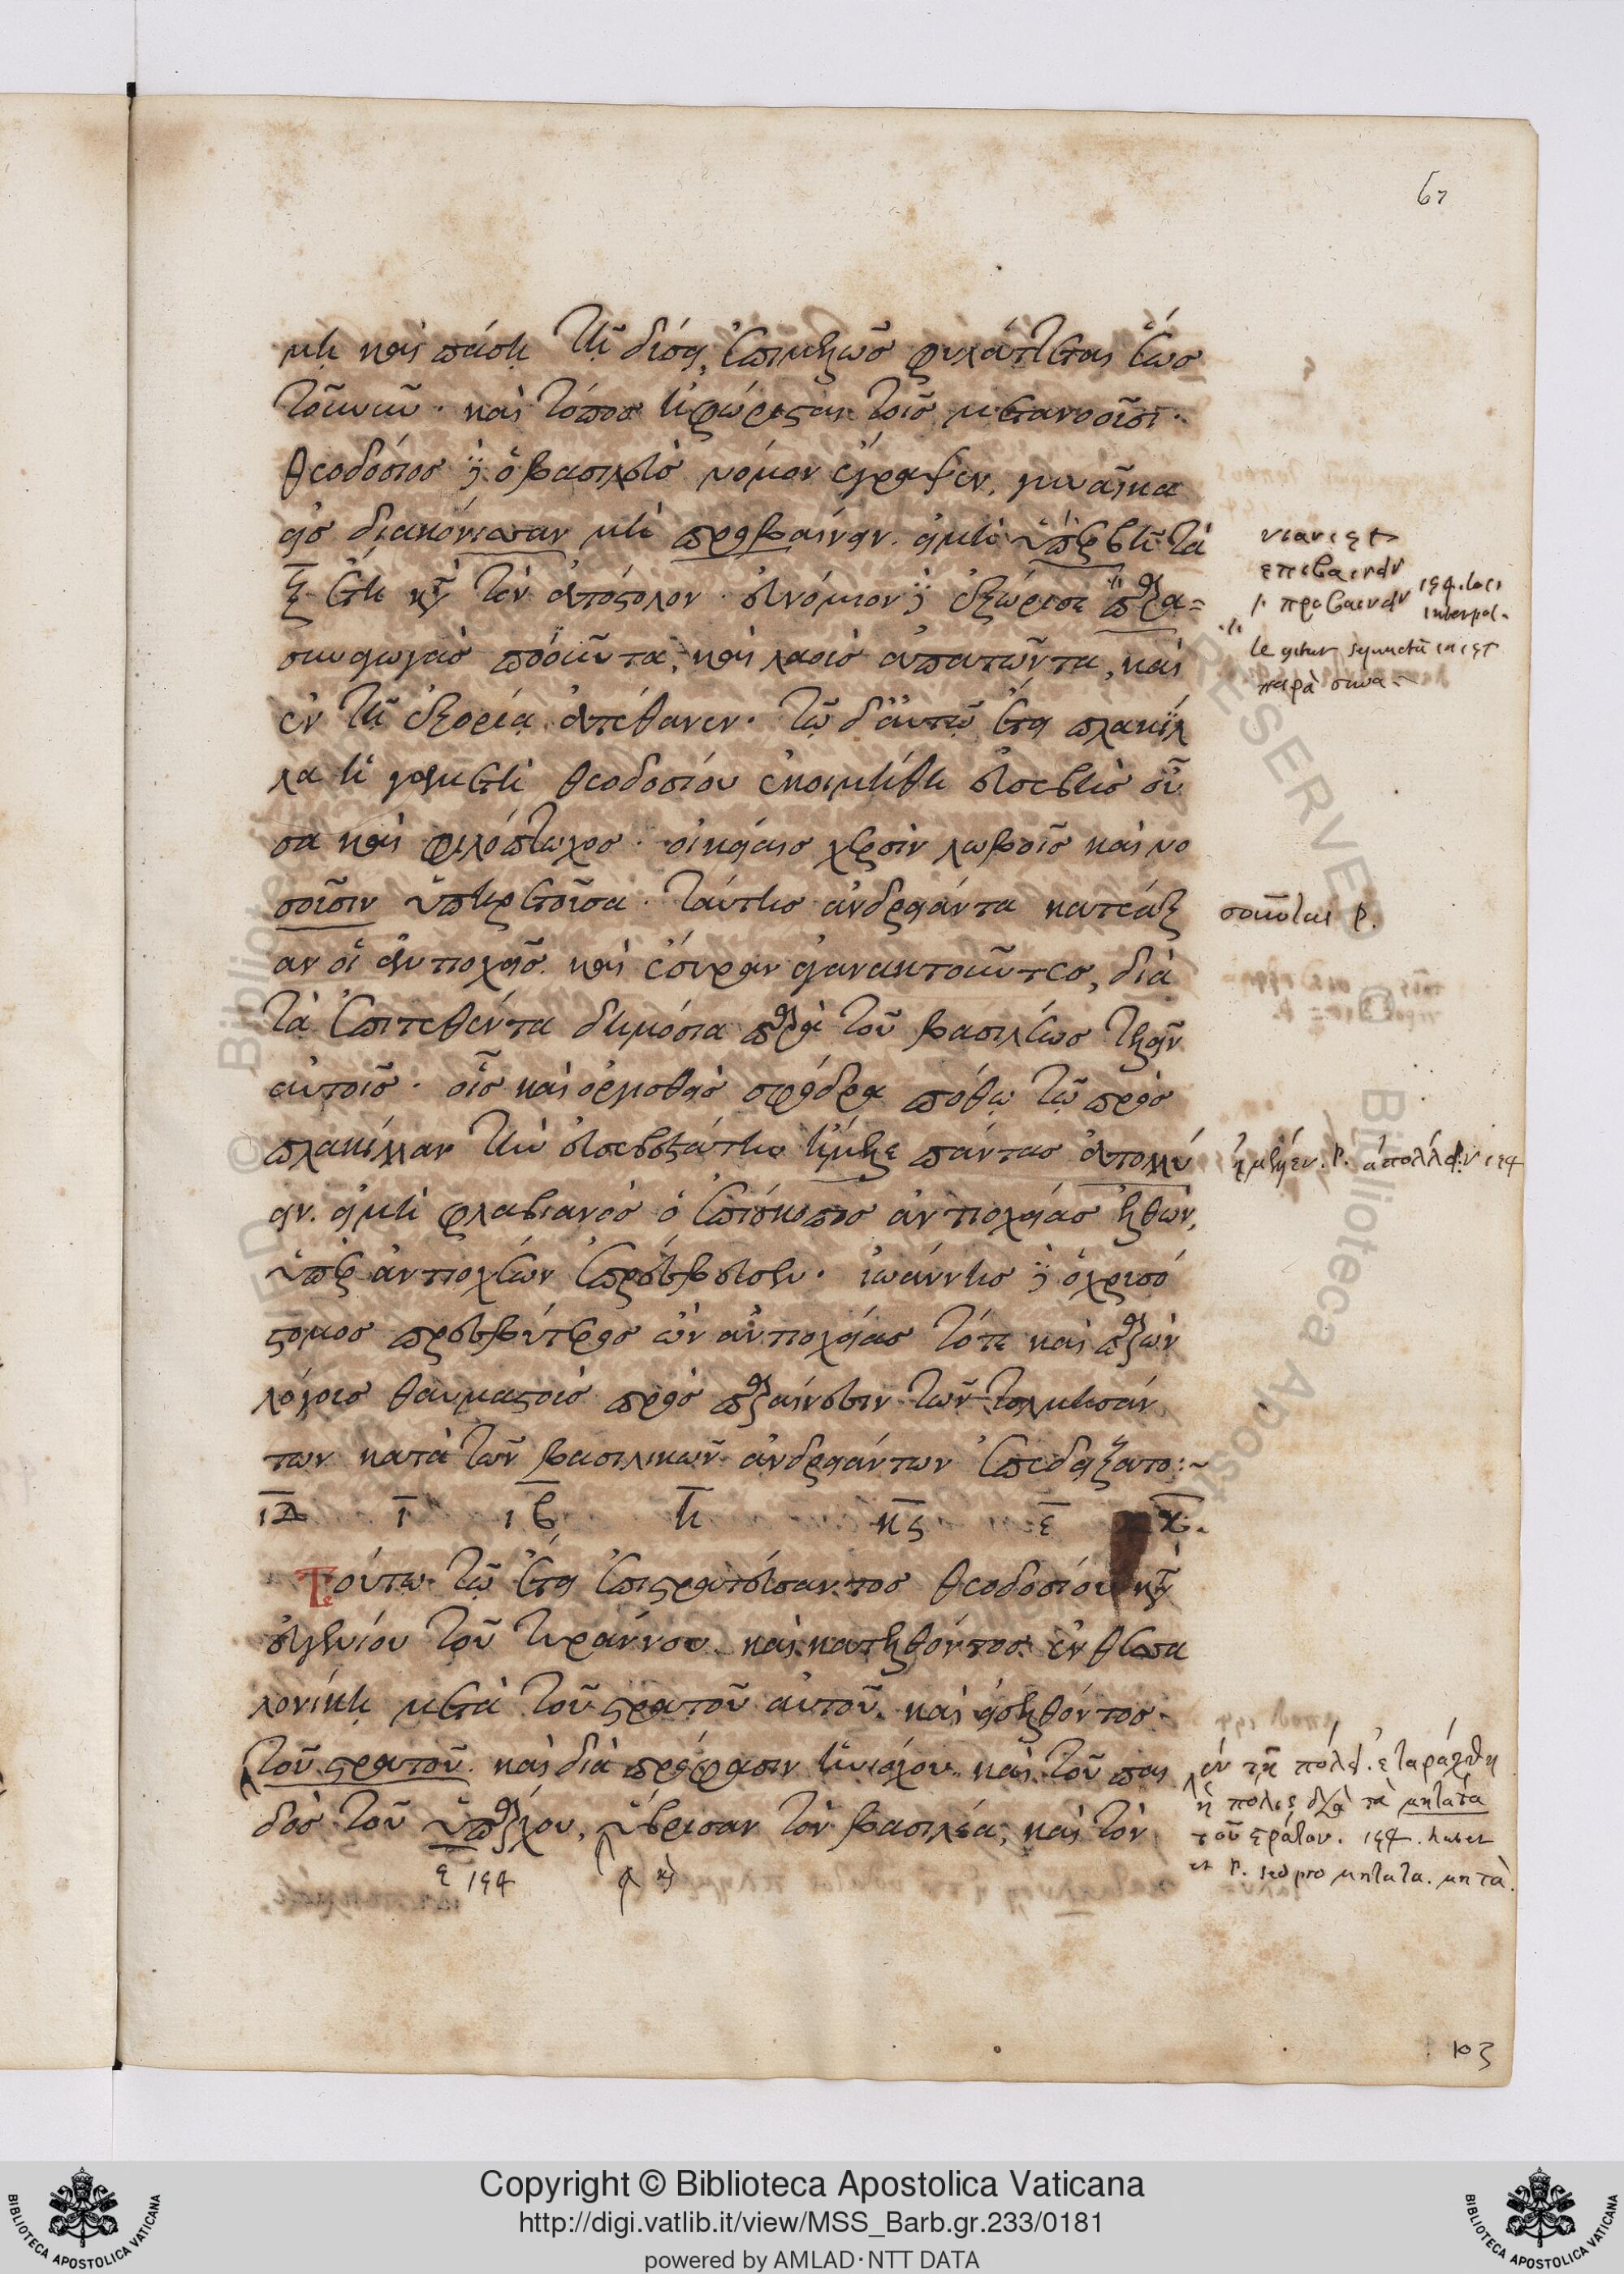 67
μη καὶ πάση τῆ δύσει, ἐπιμελῶς φυλάττεται ἕως
τοῦ νῦν. καὶ τόπος ἀφώρισται τοῖς μετανοοῦσι.
Θεοδόσιος δὲ ὁ βασιλεὺς νόμον ἔγραψεν, γυναῖκα
εἰς διακόνισσαν μὴ προβαίνειν. εἰ μὴ ὑπερβῆ τὰ
ξ ἔτη κατὰ τὸν ἀπόστολον. εὐνόμιον δὲ ἐξώρισε παρα=
συναγωγὰς ποιοῦντα, καὶ λαοὺς ἀπατῶντα, καὶ
ἐν τῆ ἐξορία ἀπέθανεν. τῷ δ' αὐτῷ ἔτει πλακίλ
λα ἡ γαμετὴ θεοδοσίου ἐκοιμήθη εὐσεβὴς οὖ
σα καὶ φιλόπτωχος. οἰκείαις χερσὶν λωβοῖς καὶ νο
σοῦσιν ὑπηρετοῦσα. ταύτης ἀνδριάντα κατέαξ
αν οἱ ἀντιοχεῖς. καὶ ἔσυραν ἀγανακτοῦντες, διὰ
τὰ ἐπιτεθέντα δημόσια παρὰ τοῦ βασιλέως τελεῖν
αὐτοῖς. οἷς καὶ ὀργισθεὶς σφόδρα πόθῳ τῷ πρὸς
πλακίλλαν τὴν εὐσεβεστάτην ἤμελλε πάντας ἀπολλύ
ειν. εἰ μὴ φλαβιανὸς ὁ ἐπίσκοπος ἀντιοχείας ἐλθὼν,
ὑπὲρ ἀντιοχέων ἐπρέσβευσεν. ἰωάννης δὲ ὁ χρυσό
στομος πρεσβύτερος ὢν ἀντιοχείας τότε καὶ παρὼν
λόγοις θαυμαστοῖς πρὸς παραίνεσιν τῶν τολμησάν
των κατὰ τῶν βασιλικῶν ἀνδριάντων ἐπεδείξατο:~
ιδ ι ιβ η κς ε
Τούτῳ τῷ ἔτει ἐπιστρατεύσαντος θεοδοσίου κατὰ
εὐγενίου τοῦ τυράννου καὶ κατελθόντος ἐν θεσσα
λονίκη μετὰ τοῦ στρατοῦ αὐτοῦ. καὶ εἰσελθόντος
τοῦ στρατοῦ. καὶ διὰ πρόφασιν ἡνιόχου καὶ τοῦ παι
δὸς τοῦ ὑπάρχου, ὕβρισαν τὸν βασιλέα, καὶ τὸν
επιβαινειν
προβαινειν
interpol.
legitur
παρὰ συνα-
ἤμελλεν. P. ἀπολλύειν
ἐν τῆ πόλει. ἐταράχθη
ἡ πόλις διὰ τὰ μητάτα
τοῦ στράτου. habet
et P. sed pro μητατα. μητὰ.
103
Copyright © Biblioteca Apostolica Vaticana
http://digi.vatlib.it/view/MSS_Barb.gr.233/0181
powered by AMLAD·NTT DATA
BIBLIOTECA APOSTOLICA VATICANA
BIBLIOTECA APOSTOLICA VATICANA